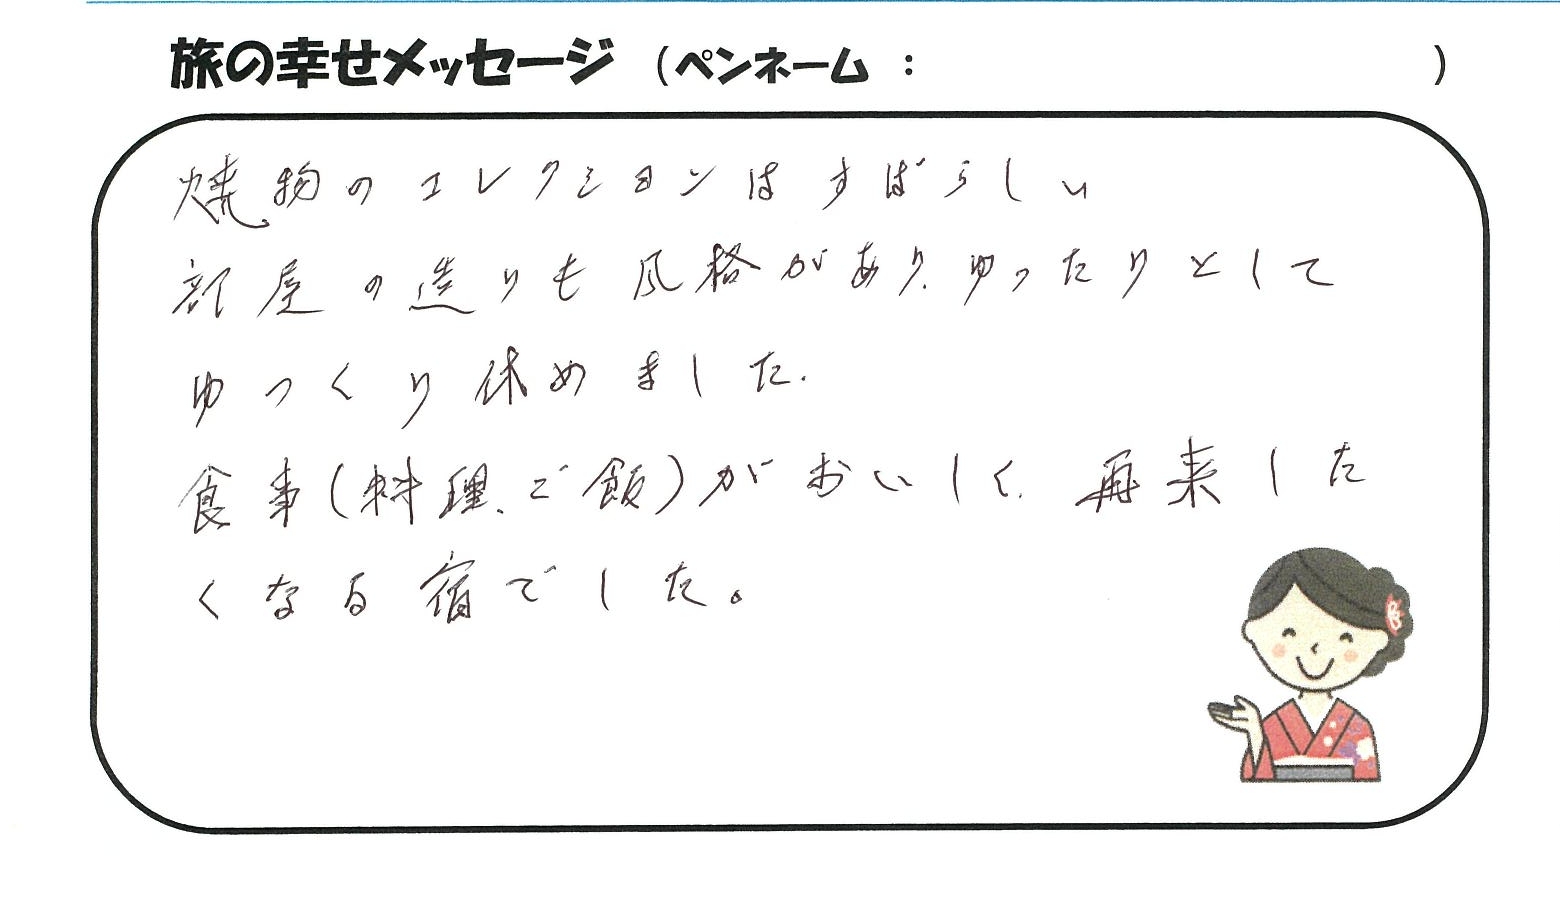 旅の幸せメッセージ （ペンネーム ： ）
焼物のコレクションはすばらしい
部屋の造りも風格があり、ゆったりとして
ゆっくり休めました.
食事(料理、ご飯)がおいしく、再来した
くなる宿でした。